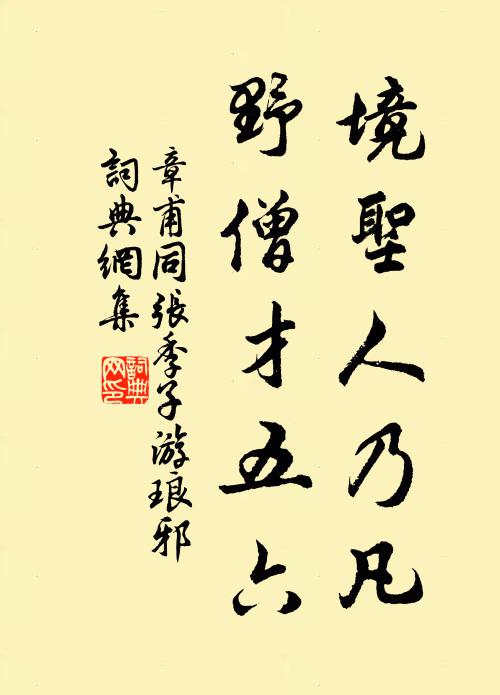 境聖人乃凡
野僧才五六
章甫同張季子游琅邪
詞典網集
詞典网印